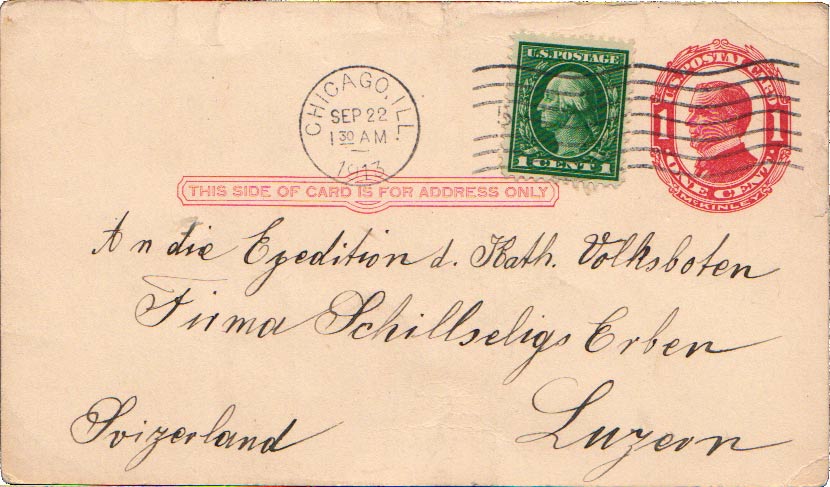 CHICAGO, ILL.
SEP 22
1 30 AM
1913
U.S. POSTAGE
1 CENT 1
U.S. POSTAL CARD
1 1
ONE CENT
McKINLEY
THIS SIDE OF CARD IS FOR ADDRESS ONLY
An die Expedition d. Kath. Volksboten
Firma Schillseligs Erben
Luzern
Svizerland